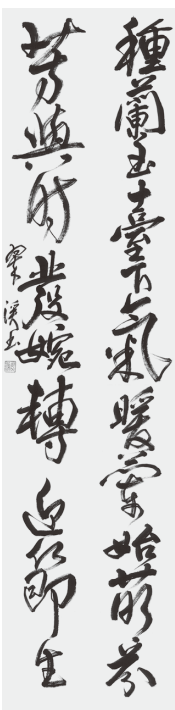 種蘭玉臺下氣暖蘭始萌芬
芳與時發婉轉迎節生
翠溪書